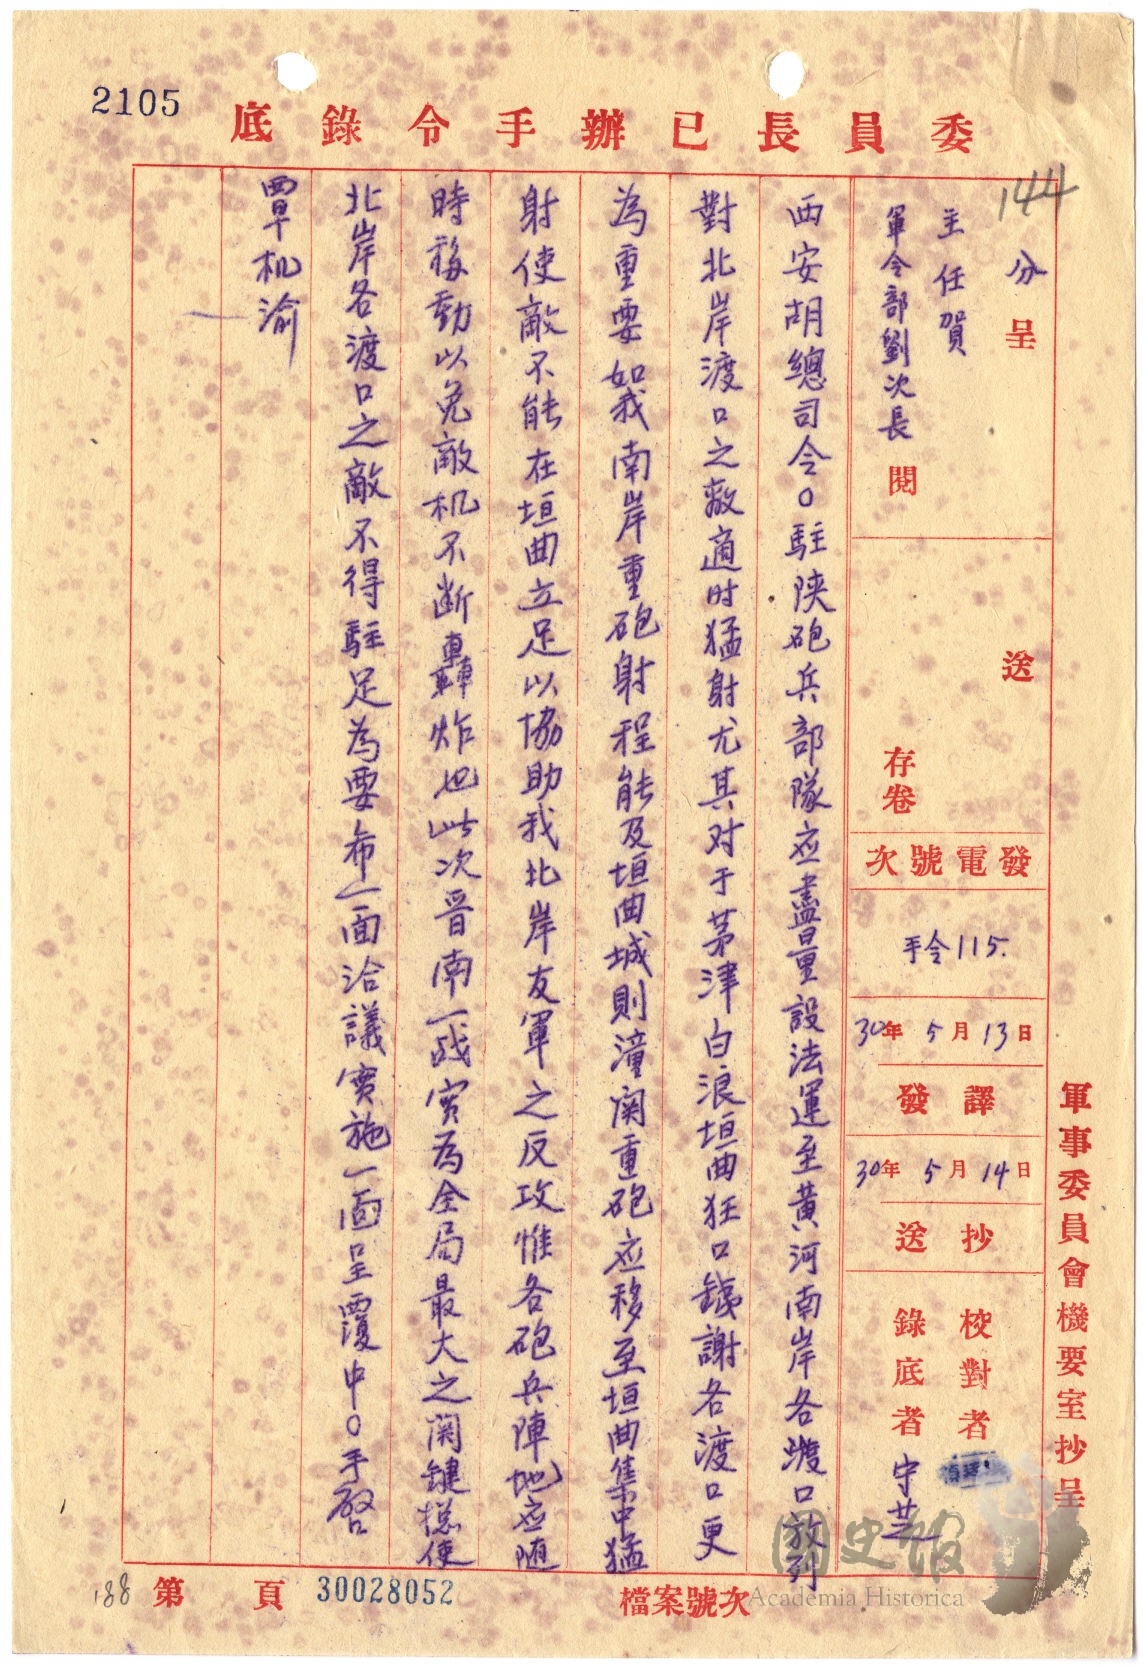 2105
委員長已辦手令錄底
144
分呈
主任賀
軍令部劉次長
閱
送
存卷
發電號次
手令115.
30年5月13日
譯發
30年5月14日
抄送
校對者
錄底者 守芝
軍事委員會機要室抄呈
西安胡總司令○駐陝砲兵部隊应盡量設法運至黃河南岸各渡口放列
對北岸渡口之敵適时猛射尤其对于茅津白浪垣曲狂口鐵謝各渡口更
為重要如我南岸重砲射程能及垣曲城則潼関重砲应移至垣曲集中猛
射使敵不能在垣曲立足以協助我北岸友軍之反攻惟各砲兵陣地应随
時移動以免敵机不断轟炸也此次晉南一战实為全局最大之関鍵總使
北岸各渡口之敵不得駐足為要希一面洽議實施一面呈覆中○手啓
覃机渝
188
第 頁
30028052
檔案號次
國史館
Academia Historica